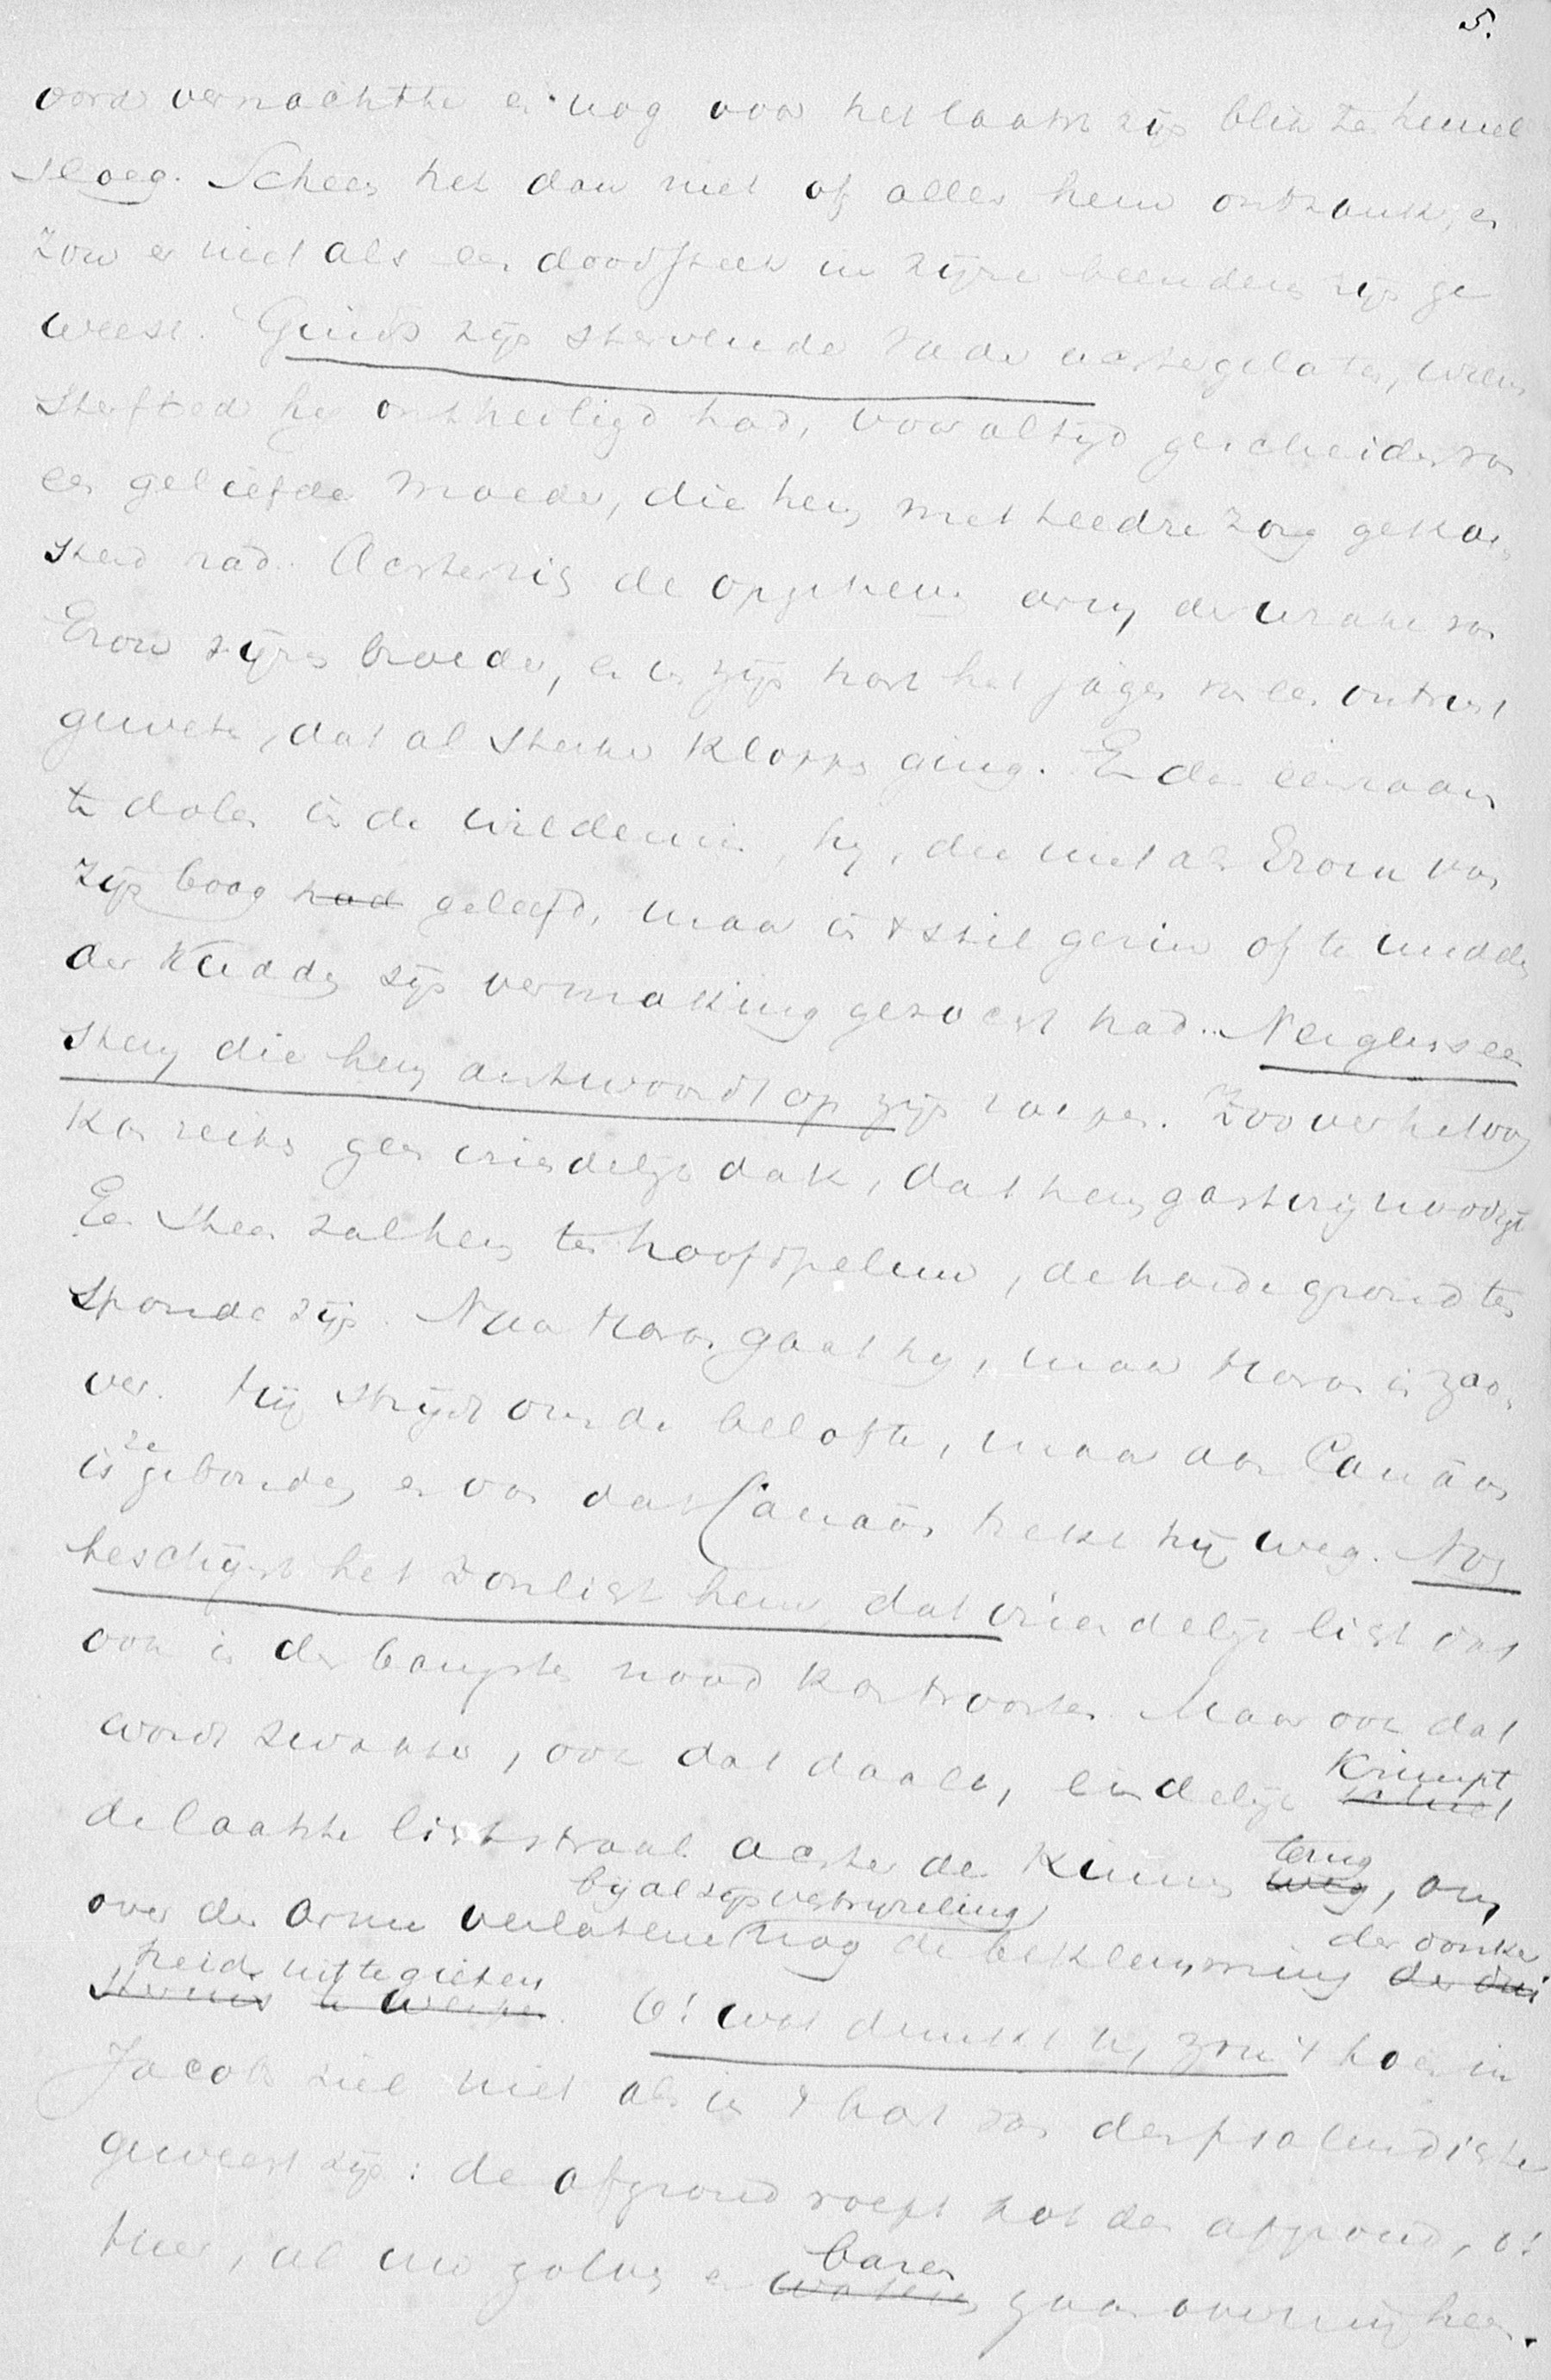 5.
oord vernachtte en nog voor het laatst zijn blik ten hemel
sloeg. Scheen het dan niet of alles hem ontzonk, en
zou er niet als een doodsteek in zijne beenderen zijn ge
weest. Ginds zijn stervende vader achtergelaten, wiens
sterfbed hij ontheiligd had, voor altijd gescheiden van
een geliefde moeder, die hem met teedre zorg gekoes
terd had. Achter zich de opgeheven arm, de wrake van
Ezau zijns broeder, en in zijn hart het jagen van een ontrust
geweten, dat al sterker kloppen ging. En dan eenzaam
te dolen in de wildernis hij, die niet als Ezau van
zijn boog had geleefd, maar in 't stil gezin of te midden
der kudden zijn vermaking gezocht had. Nergens een
stem die hem antwoordt op zijn roepen. Zoover het oog
kan reiken geen vriendelijk dak, dat hem gastvrij noodigt
Een steen zal hem ten hoofdpeluw, de harde grond ten
sponde zijn. Naar Haran gaat hij, maar Haran is zoo
ver. Hij strijdt om de belofte, maar aan Canaän
is ze gebonden, en van dat Canaän trekt hij weg. Nog
beschijnt het zonlicht hem, dat vriendelijk licht dat
ook in den bangsten nood kan troosten. Maar ook dat
wordt zwakker, ook dat daalt, eindelijk krimpt
de laatste lichtstraal achter de kimmen weg terug, om
over den armen verlatene bij al zijn vertwijfeling nog de beklemming der dui der donker
sternis te werpen heid uit te gieten. O! wat dunkt u, zou 't toen in
Jacobs ziel niet als in 't hart van den psalmdichter
geweest zijn: de afgrond roept tot den afgrond, o!
Heer, al uw golven en wateren baren gaan over mij heen.